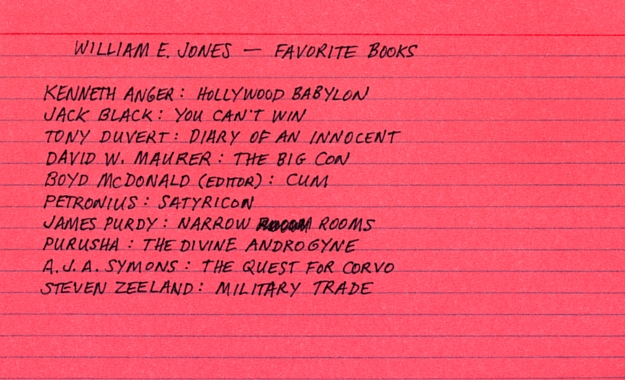 WILLIAM E. JONES — FAVORITE BOOKS
KENNETH ANGER: HOLLYWOOD BABYLON
JACK BLACK: YOU CAN'T WIN
TONY DUVERT: DIARY OF AN INNOCENT
DAVID W. MAURER: THE BIG CON
BOYD McDONALD (EDITOR): CUM
PETRONIUS: SATYRICON
JAMES PURDY: NARROW ROOMS
PURUSHA: THE DIVINE ANDROGYNE
A.J.A. SYMONS: THE QUEST FOR CORVO
STEVEN ZEELAND: MILITARY TRADE